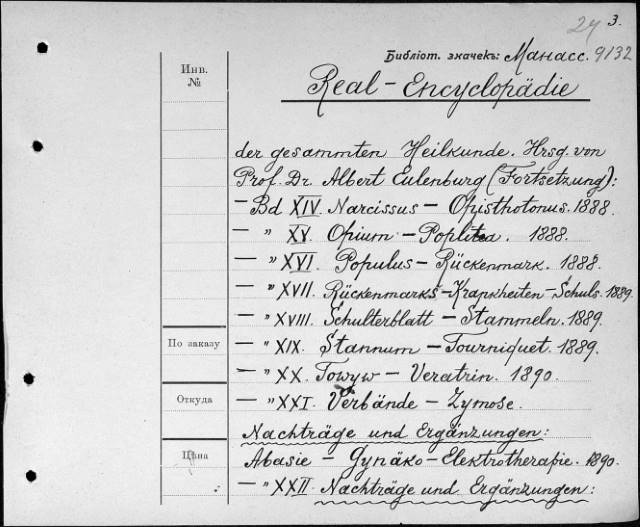 24 3.
Библіот. значекъ: Манасс. 9132
Инв.
№
Real-Encyclopädie
der gesammten Heilkunde. Hrsg. von
Prof. Dr. Albert Eulenburg (Fortsetzung):
— Bd XIV. Narcissus – Opisthotonus. 1888.
— " XV. Opium – Poplitea. 1888.
— " XVI. Populus – Rückenmark. 1888.
— " XVII. Rückenmarks-Krankheiten – Schuls. 1889.
— " XVIII. Schulterblatt – Stammeln. 1889.
По заказу
— " XIX. Stannum – Tourniquet. 1889.
— " XX. Towyw – Veratrin. 1890.
Откуда
— " XXI. Verbände – Zymose.
Nachträge und Ergänzungen:
Цѣна
Abasie – Gynäko-Elektrotherapie. 1890.
— " XXII. Nachträge und Ergänzungen: